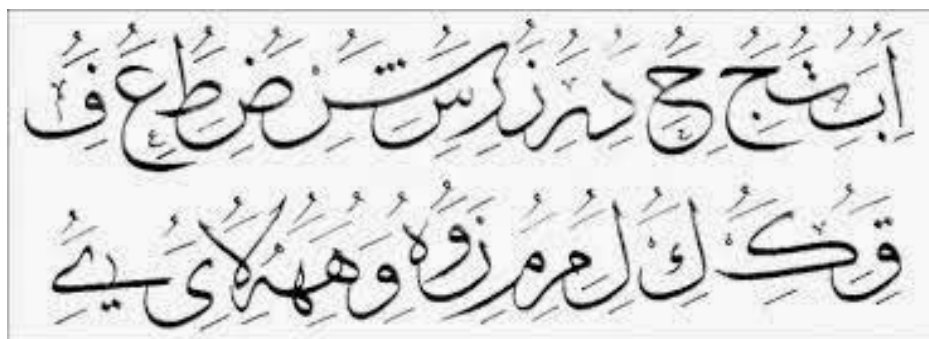 ا ب ت ج ح د ر ز ر س ش ض ط ع ف
ق ک ك ل م م ز و ه و ه ه لا ى ے